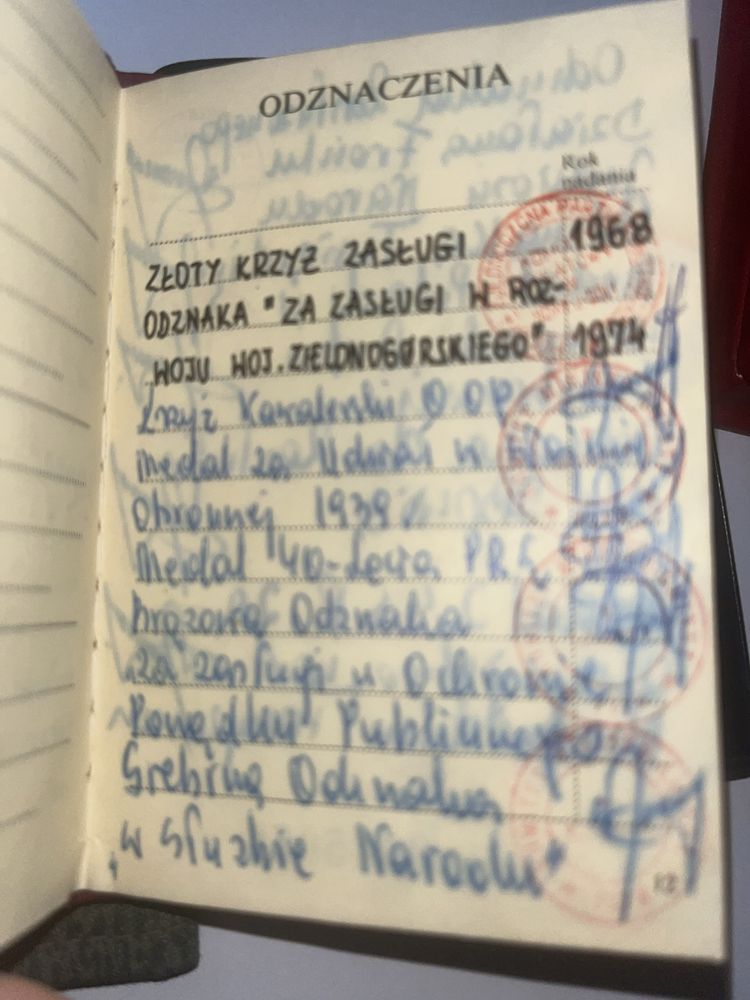 ODZNACZENIA
Rok
nadania
ZŁOTY KRZYŻ ZASŁUGI 1968
ODZNAKA "ZA ZASŁUGI W ROZ-
WOJU WOJ. ZIELONOGÓRSKIEGO" 1974
Krzyż Kawalerski OOP
Medal za Udział w Wojnie
Obronnej 1939
Medal 40-lecia PRL
Brązowa Odznaka
za zasługi w Ochronie
Porządku Publicznego
Srebrna Odznaka
"W Służbie Narodu"
12